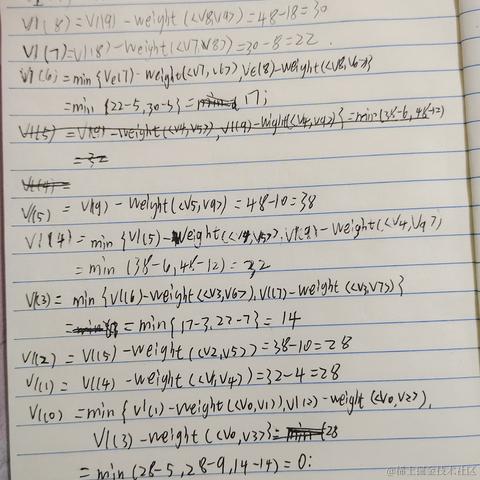 Vl(8) = Vl(9) - weight(<V8,V9>) = 48-18=30
Vl(7) = Vl(8) - weight(<V7,V8>) = 30-8=22.
Vl(6) = min{Ve(7) - weight(<V7,V6>) Ve(8) - weight(<V8,V6>)}
= min {22-5, 30-3} = 17;
Vl(5) = Vl(9) - weight(<V4,V5>), Vl(9) - wight(<V4,V9>} = min(38-6, 48-12)
= 32
Vl(4) =
Vl(5) = Vl(9) - weight(<V5,V9>) = 48-10=38
Vl(4) = min {Vl(5) - weight(<V4,V5>), Vl(9) - weight(<V4,V9>)
= min (38-6, 48-12) = 32
Vl(3) = min{Vl(6) - weight(<V3,V6>), Vl(7) - weight(<V3,V7>)}
= min{17-3, 22-7} = 14
Vl(2) = Vl(5) - weight(<V2,V5>) = 38-10=28
Vl(1) = Vl(4) - weight(<V1,V4>) = 32-4=28
Vl(0) = min{Vl(1) - weight(<V0,V1>), Vl(2) - weight(<V0,V2>),
Vl(3) - weight(<V0,V3>} = min {28
= min (28-5, 28-9, 14-14) = 0:
@稀土掘金技术社区